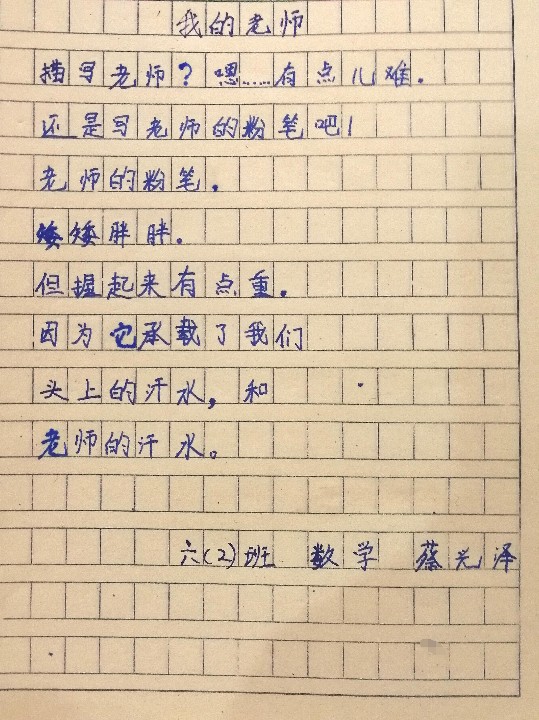 我的老师
描写老师？嗯……有点儿难。
还是写老师的粉笔吧！
老师的粉笔，
矮矮胖胖。
但握起来有点重。
因为它承载了我们
头上的汗水，和
老师的汗水。
六(2)班 数学 蔡光泽